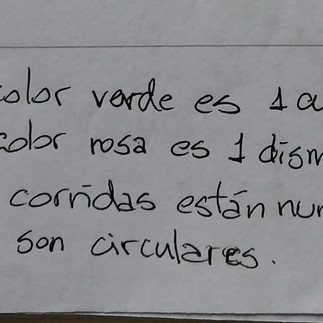 color verde es 1 au
color rosa es 1 dism
corridas están num
son circulares.